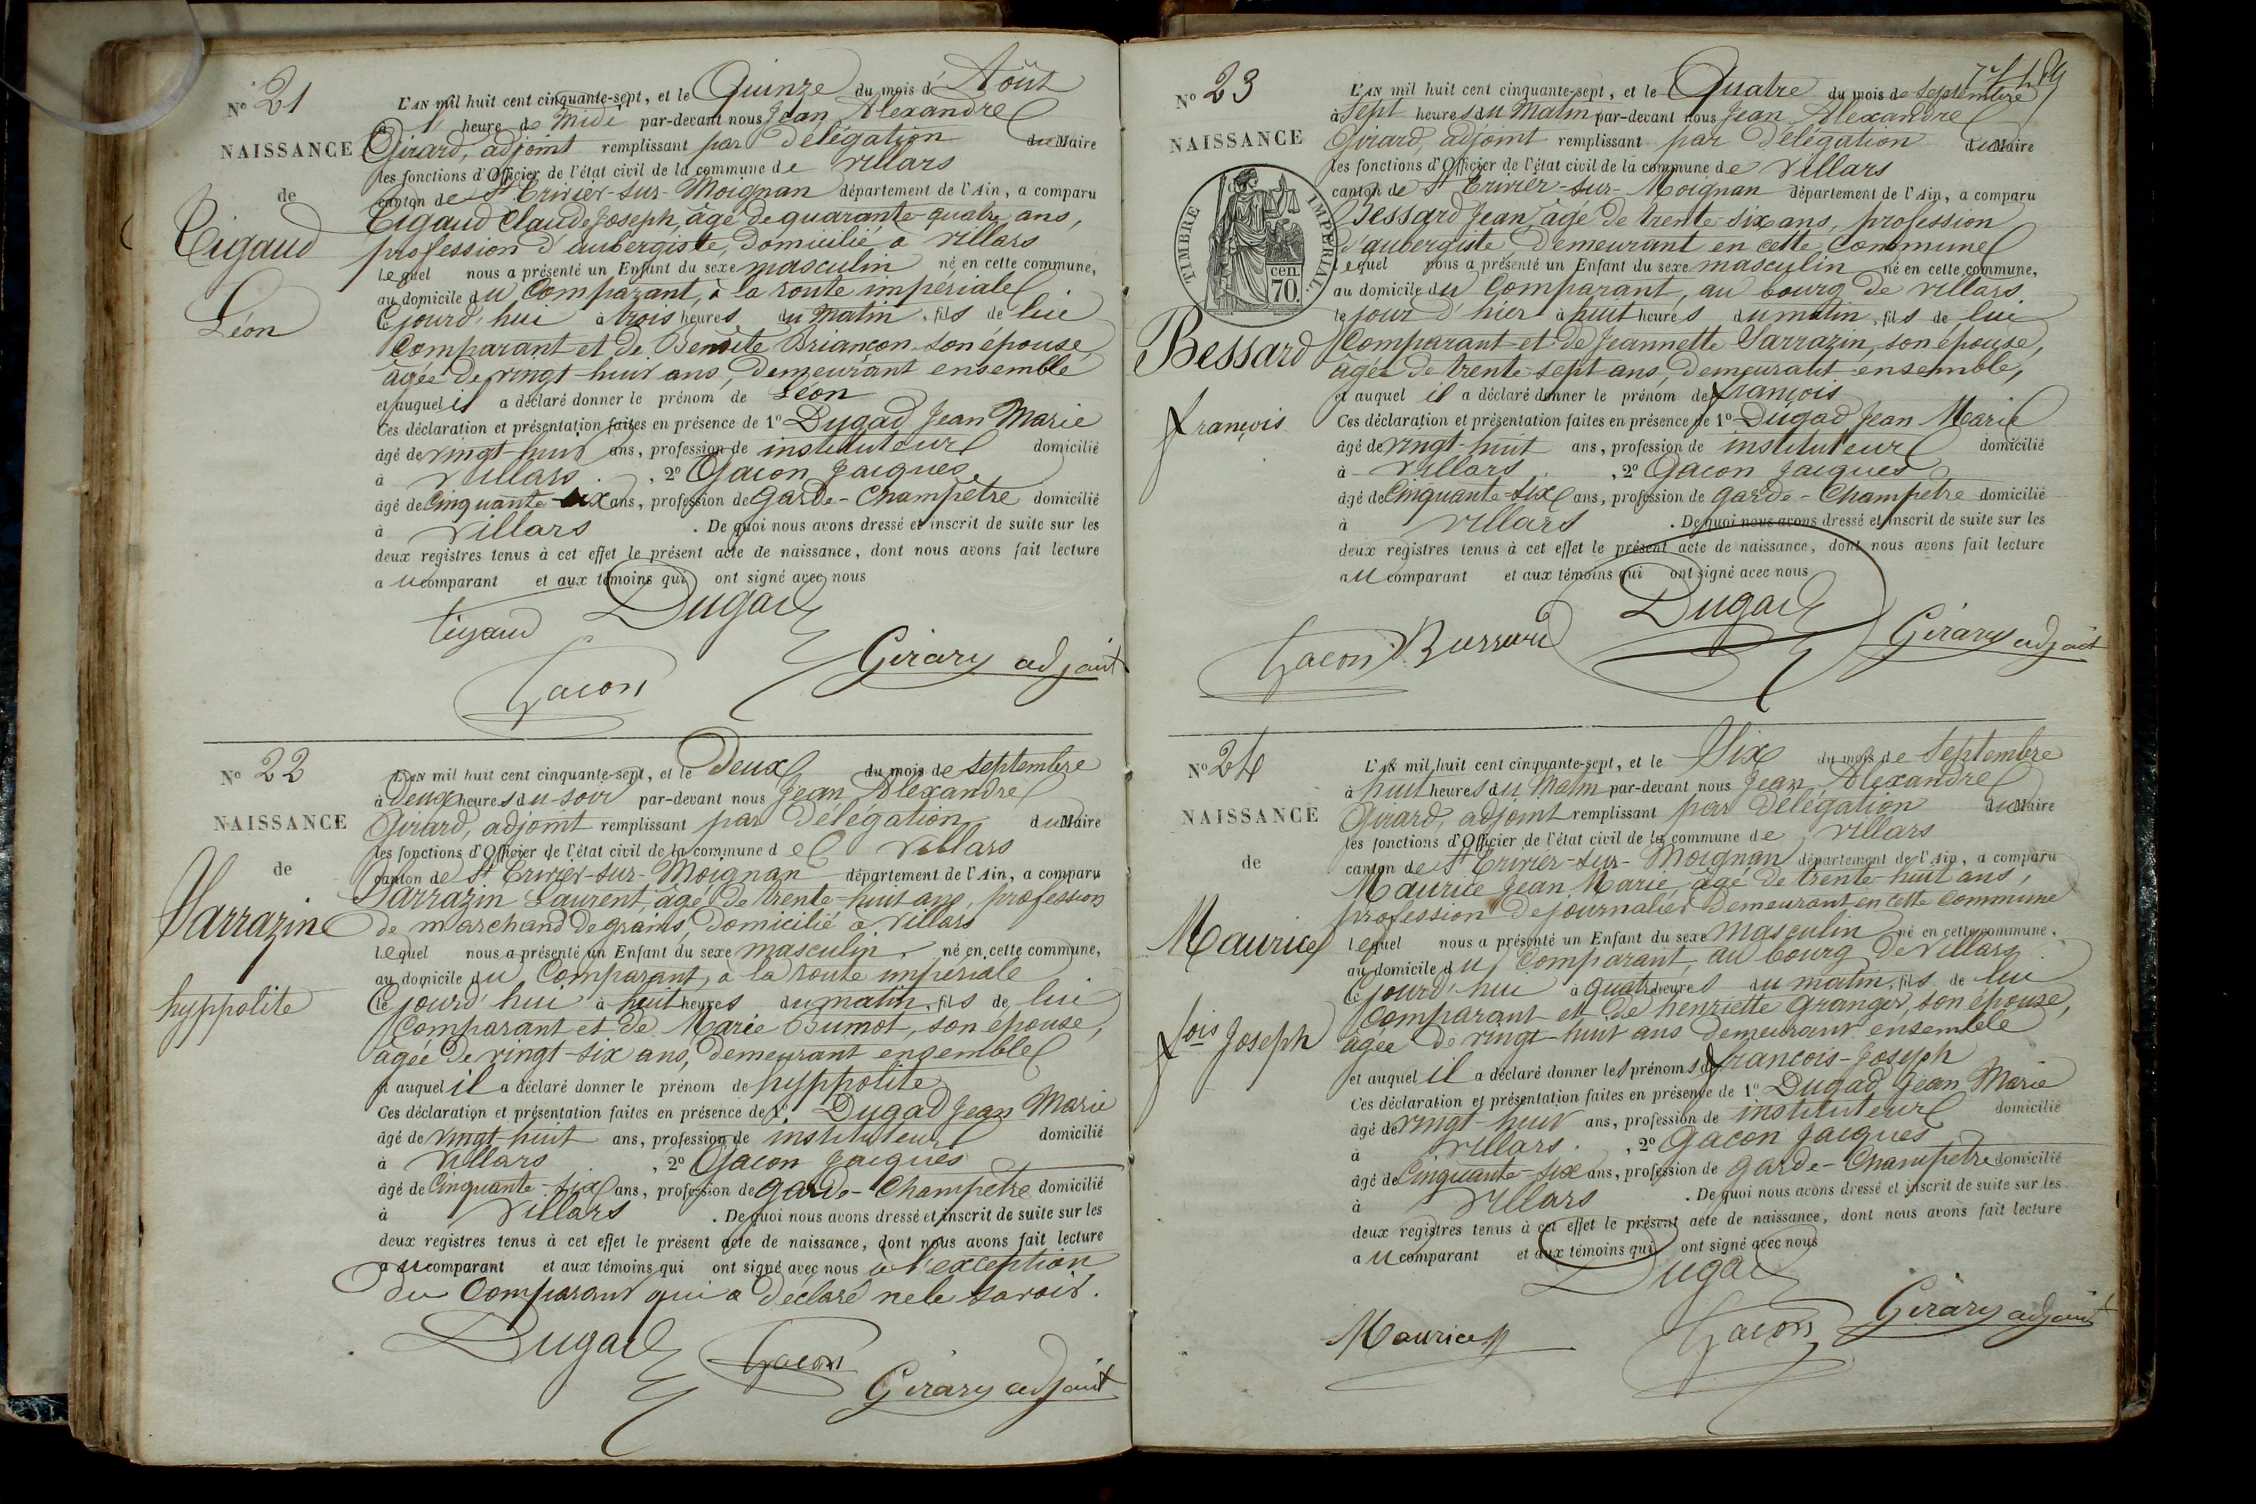 N° 21
NAISSANCE
de
Tigaud
Léon
L'AN mil huit cent cinquante-sept, et le Quinze du mois d'Août
à heure de midi par-devant nous Jean Alexandre
Girard, adjoint remplissant par délégation du Maire
les fonctions d'Officier de l'état civil de la commune de Villars
canton de St Trivier-sur-Moignan département de l'Ain, a comparu
Tigaud Claude Joseph, âgé de quarante-quatre ans,
profession d'aubergiste, domicilié à Villars
lequel nous a présenté un Enfant du sexe masculin né en cette commune,
au domicile du Comparant, à la route impériale
ce jourd'hui à trois heures du matin, fils de lui
Comparant et de Benoîte Briançon son épouse,
âgée de vingt-huit ans, demeurant ensemble
et auquel il a déclaré donner le prénom de Léon
Ces déclaration et présentation faites en présence de 1° Dugad Jean Marie
âgé de vingt-huit ans, profession de instituteur domicilié
à Villars . , 2° Gacon Jacques
âgé de Cinquante-six ans, profession de garde-Champetre domicilié
à Villars . De quoi nous avons dressé et inscrit de suite sur les
deux registres tenus à cet effet le présent acte de naissance, dont nous avons fait lecture
au comparant et aux témoins qui ont signé avec nous
tigaud Dugad
Gacon Girard adjoint
N° 22
NAISSANCE
de
Sarrazin
hyppolite
L'AN mil huit cent cinquante-sept, et le Deux du mois de Septembre
à Deux heures du soir par-devant nous Jean Alexandre
Girard, adjoint remplissant par délégation du Maire
les fonctions d'Officier de l'état civil de la commune de Villars
canton de St Trivier-sur-Moignan département de l'Ain, a comparu
Sarrazin Laurent, âgé de trente-huit ans, profession
de marchand de grains, domicilié à Villars
lequel nous a présenté un Enfant du sexe masculin né en cette commune,
au domicile du Comparant, à la route impériale
ce jourd'hui à huit heures du matin, fils de lui
Comparant et de Marie Bumot, son épouse,
âgée de vingt-six ans, demeurant ensemble
et auquel il a déclaré donner le prénom de hyppolite
Ces déclaration et présentation faites en présence de 1° Dugad Jean Marie
âgé de vingt-huit ans, profession de instituteur domicilié
à Villars , 2° Gacon Jacques
âgé de Cinquante-six ans, profession de garde-Champetre domicilié
à Villars . De quoi nous avons dressé et inscrit de suite sur les
deux registres tenus à cet effet le présent acte de naissance, dont nous avons fait lecture
au comparant et aux témoins qui ont signé avec nous à l'exception
du Comparant qui a déclaré ne le savoir.
Dugad Gacon
Girard adjoint
N° 23
NAISSANCE
TIMBRE IMPÉRIAL
cen.
70.
Bessard
françois
L'AN mil huit cent cinquante-sept, et le Quatre du mois de Septembre
à Sept heures du matin par-devant nous Jean Alexandre
Girard, adjoint remplissant par délégation du Maire
les fonctions d'Officier de l'état civil de la commune de Villars
canton de St Trivier-sur-Moignan département de l'Ain, a comparu
Bessard Jean âgé de trente-six ans, profession
d'aubergiste demeurant en cette Commune
lequel nous a présenté un Enfant du sexe masculin né en cette commune,
au domicile du Comparant, au bourg de villars
le jour d'hier à huit heures du matin, fils de lui
Comparant et de Jeannette Sarrazin, son épouse,
âgée de trente-sept ans, demeurant ensemble,
et auquel il a déclaré donner le prénom de françois
Ces déclaration et présentation faites en présence de 1° Dugad Jean Marie
âgé de vingt-huit ans, profession de instituteur domicilié
à Villars . , 2° Gacon Jacques
âgé de Cinquante-six ans, profession de garde-Champetre domicilié
à Villars . De quoi nous avons dressé et inscrit de suite sur les
deux registres tenus à cet effet le présent acte de naissance, dont nous avons fait lecture
au comparant et aux témoins qui ont signé avec nous
Dugad
Gacon Bessard Girard adjoint
N° 24
NAISSANCE
de
Maurice
fois Joseph
L'AN mil huit cent cinquante-sept, et le Six du mois de Septembre
à huit heures du matin par-devant nous Jean Alexandre
Girard, adjoint remplissant par délégation du Maire
les fonctions d'Officier de l'état civil de la commune de Villars
canton de St Trivier-sur-Moignan département de l'Ain, a comparu
Maurice Jean Marie, âgé de trente-huit ans,
profession de journalier demeurant en cette Commune
lequel nous a présenté un Enfant du sexe masculin né en cette commune,
au domicile du Comparant, au bourg de Villars
ce jourd'hui à quatre heures du matin, fils de lui
Comparant et de henriette Granger, son épouse,
âgée de vingt-huit ans demeurant ensemble
et auquel il a déclaré donner les prénoms de françois-Joseph
Ces déclaration et présentation faites en présence de 1° Dugad Jean Marie
âgé de vingt-huit ans, profession de instituteur domicilié
à Villars . , 2° Gacon Jacques
âgé de Cinquante-six ans, profession de garde-Champetre domicilié
à Villars . De quoi nous avons dressé et inscrit de suite sur les
deux registres tenus à cet effet le présent acte de naissance, dont nous avons fait lecture
au comparant et aux témoins qui ont signé avec nous
Dugad
Maurice Gacon Girard adjoint